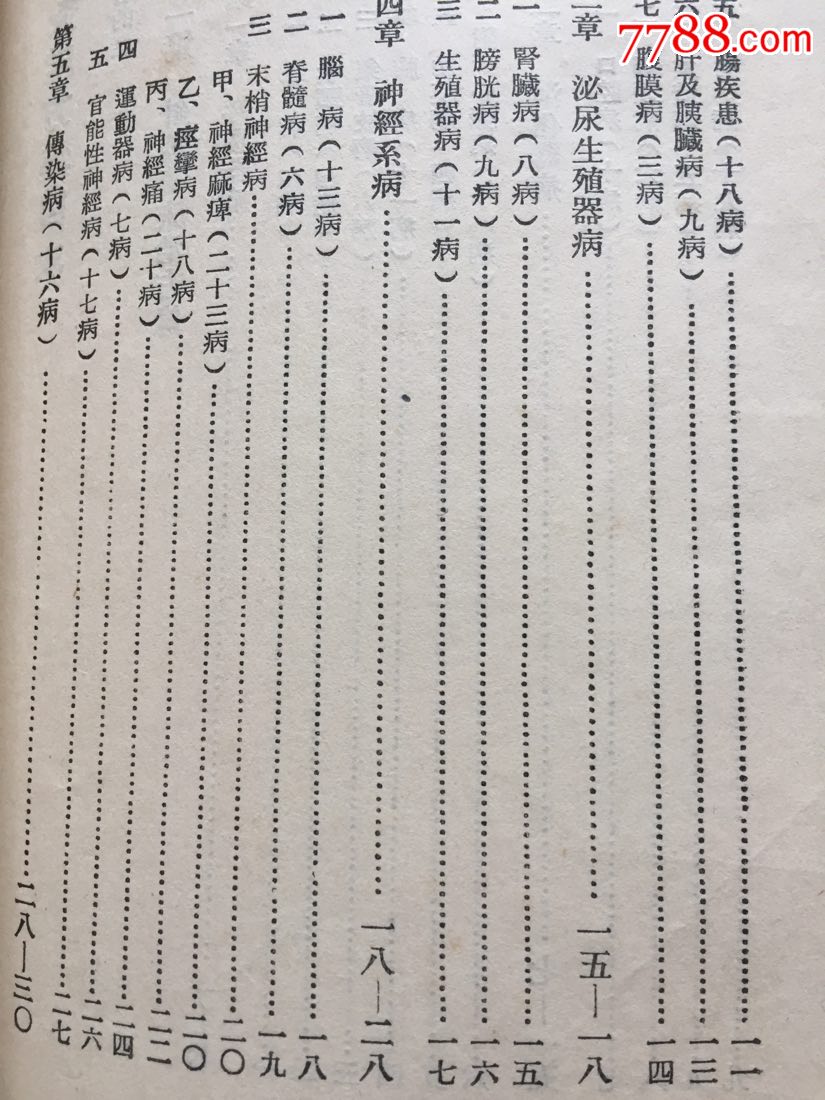 7788.com
五 腸疾患(十八病)………一一
六 肝及胰臟病(九病)………一三
七 腹膜病(三病)………一四
章 泌尿生殖器病………一五—一八
一 腎臟病(八病)………一五
二 膀胱病(九病)………一六
三 生殖器病(十一病)………一七
四章 神經系病………一八—二八
一 腦 病(十三病)………一八
二 脊髓病(六病)………一九
三 末梢神經病………二〇
甲、神經麻痺(二十三病)………二〇
乙、痙攣病(十八病)………二二
丙、神經痛(二十病)………二四
四 運動器病(七病)………二六
五 官能性神經病(十七病)………二七
第五章 傳染病(十六病)………二八—三〇